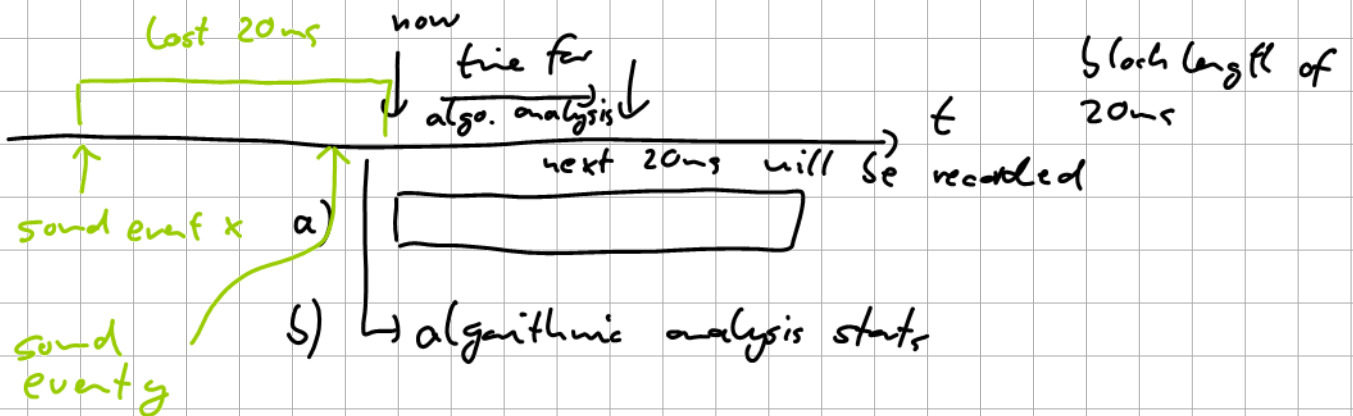 last 20ms
now
time for
algo. analysis
block length of
20ms
t
next 20ms will be recorded
sound event x
a)
b) algorithmic analysis starts
sound
event y